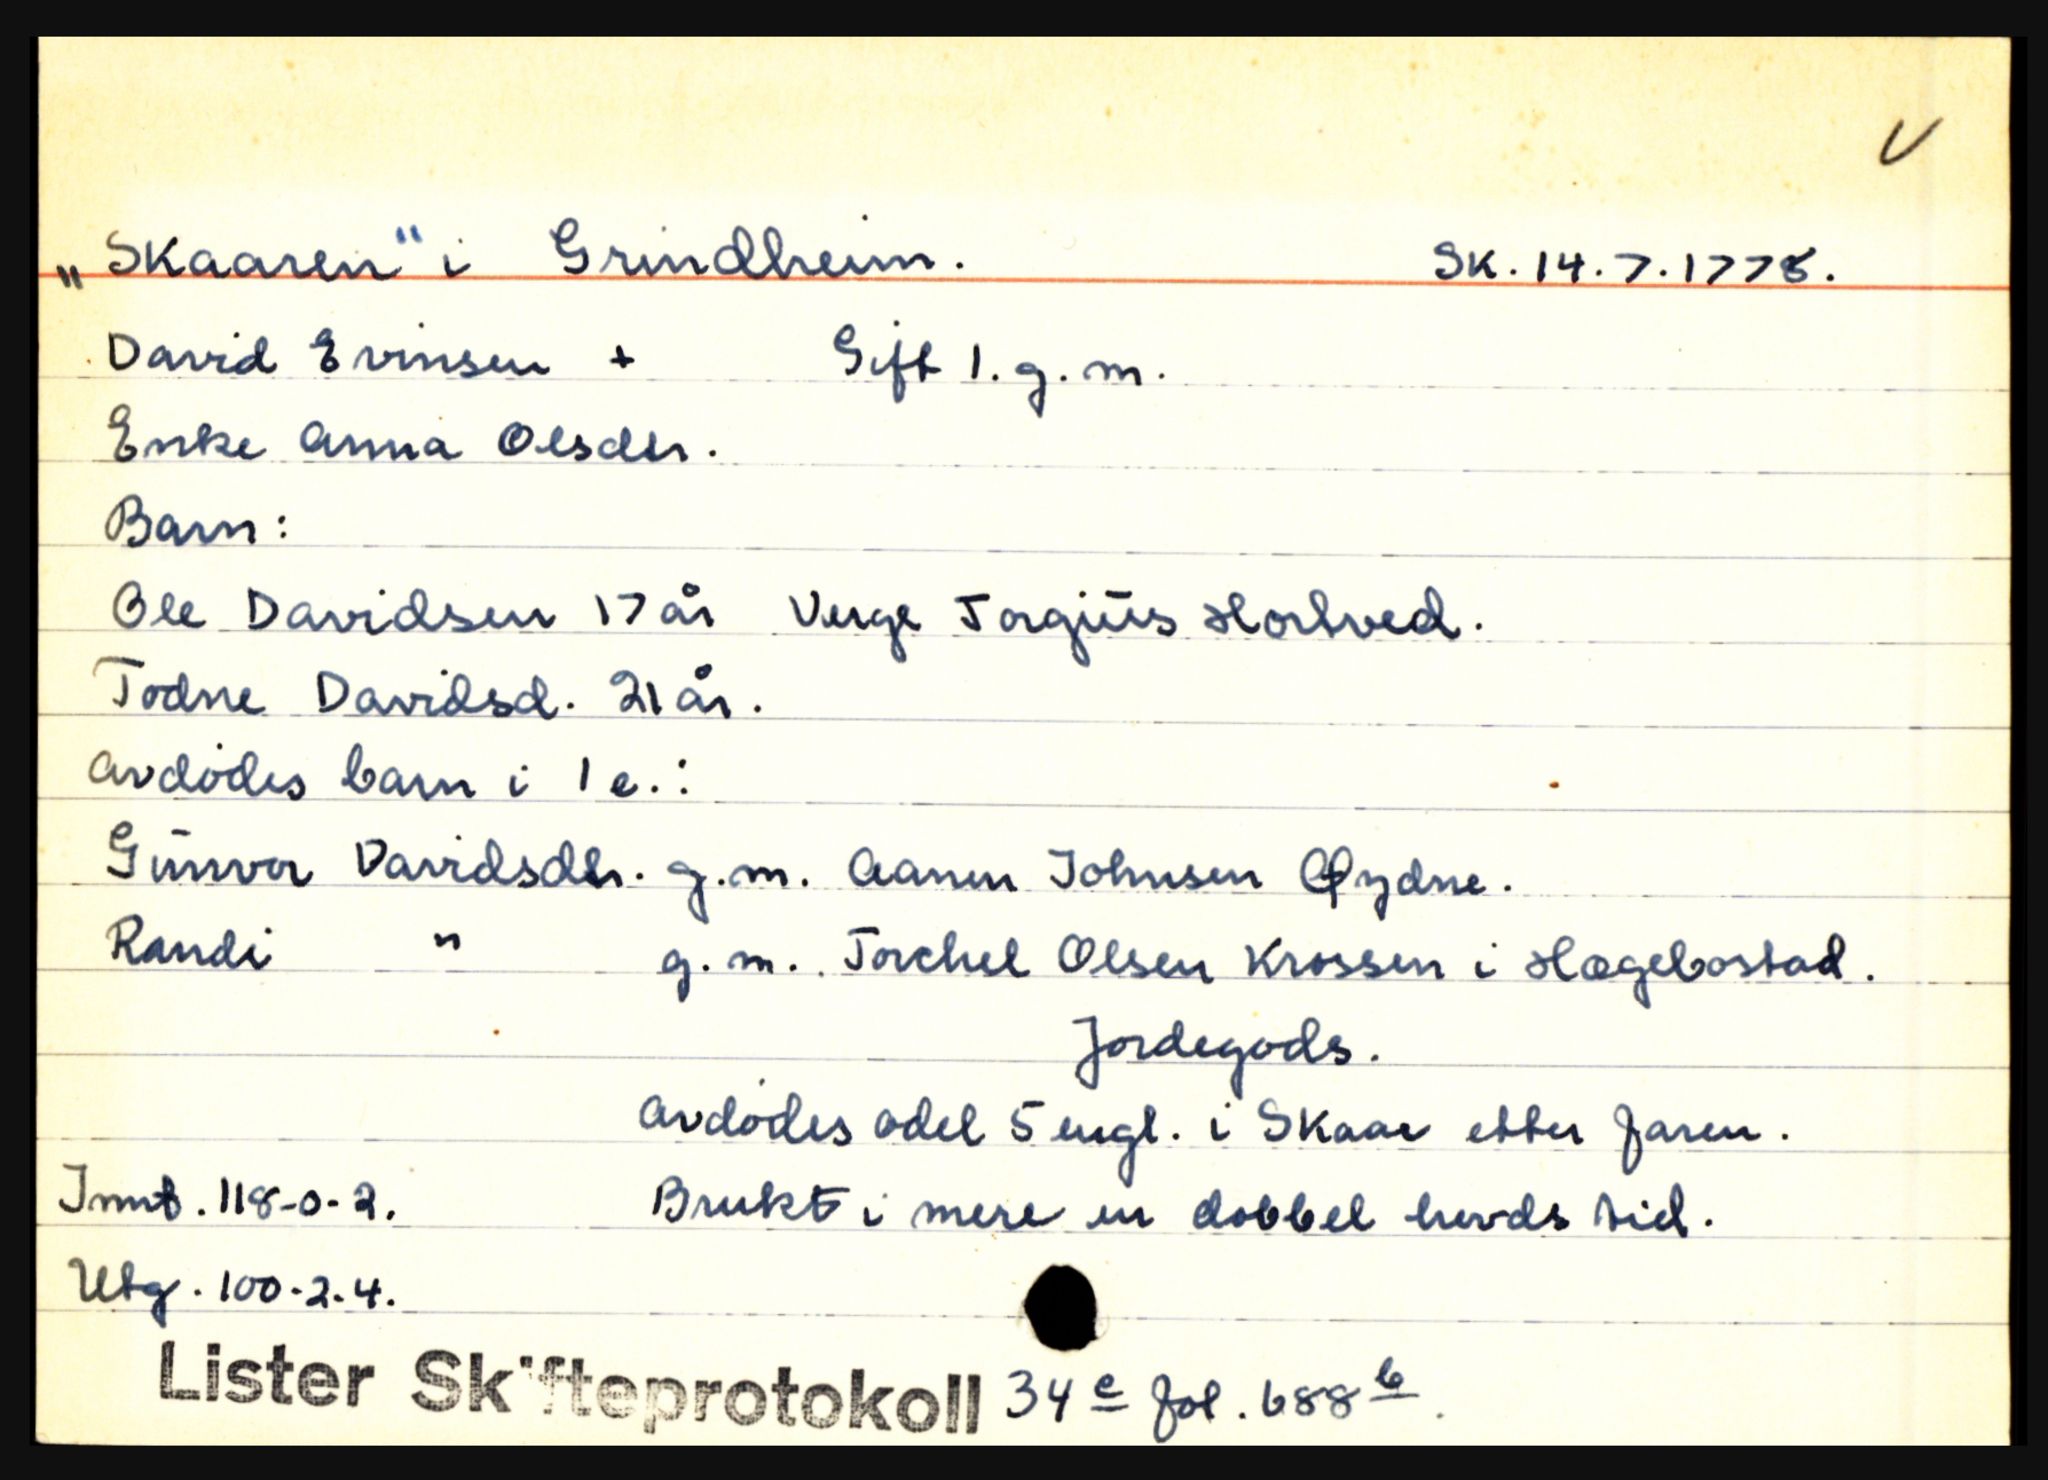 V
„Skaaren" i Grindheim. Sk. 14.7.1778.
David Evinsen + Gift 1. g. m.
Enke Anna Olsdtr.
Barn:
Ole Davidsen 17 år Verge Torgiūs Hortved.
Todne Davidsd. 21 år.
Avdødes barn i 1 e.:
Gūnvor Davidsdtr. g.m. Aanen Johnsen Øydne.
Randi " g.m. Torchel Olsen Krossen i Hægebostad.
Jordegods.
Avdødes odel 5 engl. i Skaar etter faren.
Innt. 118-0-2. Brukt i mere en dobbel hevds tid.
Utg. 100-2-4.
Lister Skifteprotokoll 34 c fol. 688 b.